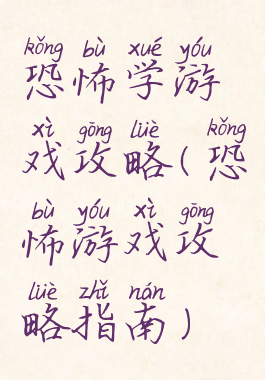 kǒng bù xué yóu
恐怖学游
xì gōng lüè kǒng
戏攻略(恐
bù yóu xì gōng
怖游戏攻
lüè zhǐ nán
略指南)